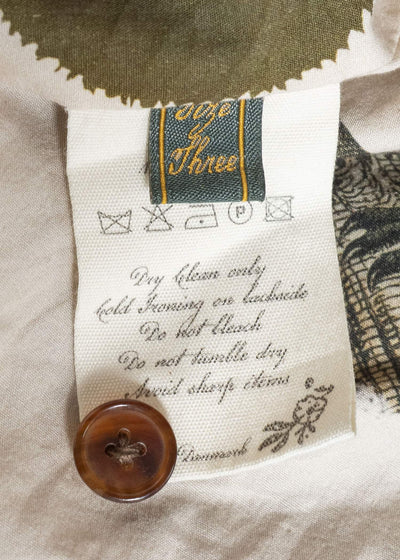 Size
Three
P
Dry Clean only
Cold Ironing on backside
Do not bleach
Do not tumble dry
Avoid sharp items
Danmark